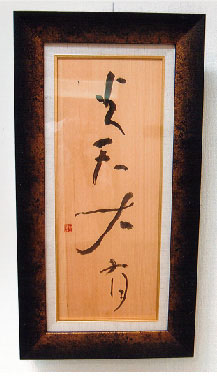 火天大有